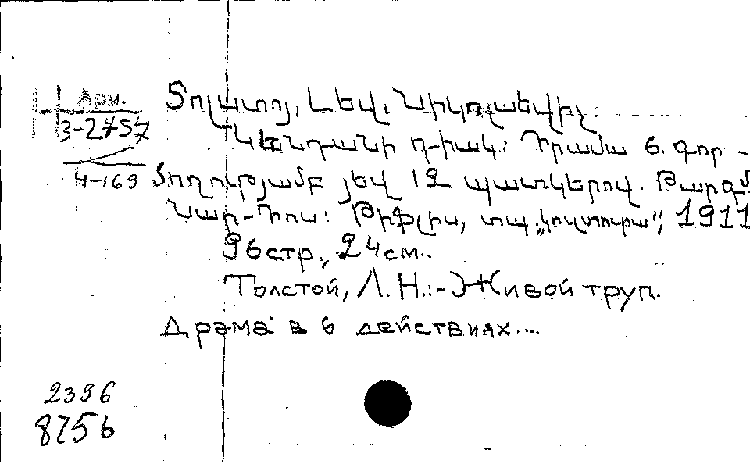 Арм.
3-2757
4-169
Տոլստոյ, Լեվ. Նիկոլաևիչ.
Կենդանի դիակ: Դրամա 6. գոր-
ծողությամբ յեվ 12 պատկերով. Թարգմ.
Սար-Յոս: Թիֆլիս, տպ. „կուլտուրա“, 1911
96стр., 24см.
Толстой, Л. Н.:-Живой труп.
Драма в 6 действиях...
2396
8756